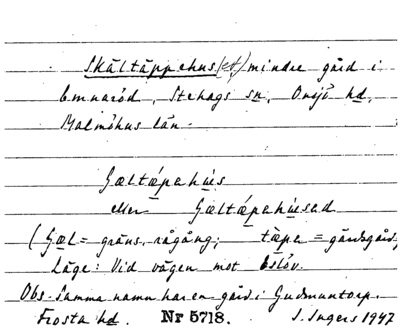 Skältäppehus (et) mindre gård i
Emnaröd, Stehags sn, Onsjö hd,
Malmöhus län.
Gæltǽpahús
eller Gæltǽpahúsad
(Gæl = gräns, rågång; tæpa = gärdsgård,
Läge: Vid vägen mot Eslöv.
Obs. Samma namn har en gård i Gudmuntorp.
Frosta hd. Nr 5718. I. Ingers 1947